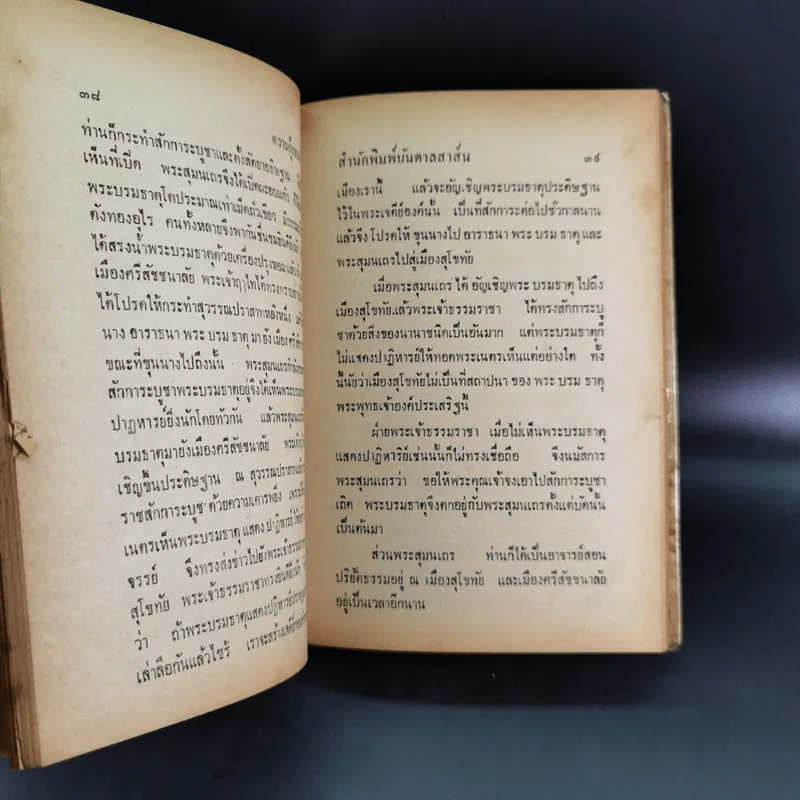 ๓๘
ท่านก็กระทำสักการะบูชาและตั้งสัตยาธิษฐาน
เห็นที่เปิด พระสุมนเถรจึงได้เปิดผะอบแก้ว
พระบรมธาตุโตประมาณเท่าเม็ดถั่วเขียว
ดังทองอุไร คนทั้งหลายจึงพากันชื่นชมยินดียิ่งนัก
ได้สรงน้ำพระบรมธาตุด้วยเครื่องปรุงหอม
เมืองศรีสัชชนาลัย พระเจ้าฤๅไทได้ทรงทราบ
ได้โปรดให้กระทำสุวรรณปราสาทหลังหนึ่ง
นาง อาราธนา พระ บรม ธาตุ มา ยัง เมือง ศรี
ขณะที่ขุนนางไปถึงนั้น พระสุมนเถร
สักการะบูชาพระบรมธาตุอยู่จึงได้เห็นพระบรม
ปาฏิหารย์ยิ่งนักโดยทัวกัน แล้วพระสุมนเถร
บรมธาตุมายังเมืองศรีสัชชนาลัย
เชิญขึ้นประดิษฐาน ณ สุวรรณปราสาท
ราชสักการะบูชา ด้วยความเคารพยิ่ง
เนตรเห็นพระบรมธาตุ แสดง ปาฏิหารย์
จรรย์ จึงทรงส่งข่าวไปยังพระเจ้าธรรม
สุโขทัย พระเจ้าธรรมราชาทรงยินดียิ่งนัก
ว่า ถ้าพระบรมธาตุแสดงปาฏิหารย์
เล่าลือกันแล้วไซร้ เราจะสร้างเจดีย์
สำนักพิมพ์บันดาลสาส์น ๓๙
เมืองเรานี้ แล้วจะอัญเชิญพระบรมธาตุประดิษฐาน
ไว้ในพระเจดีย์องค์นั้น เป็นที่สักการะต่อไปชั่วกาลนาน
แล้วจึง โปรดให้ ขุนนางไป อาราธนา พระ บรม ธาตุ และ
พระสุมนเถรไปสู่เมืองสุโขทัย
เมื่อพระสุมนเถร ได้ อัญเชิญพระ บรมธาตุ ไปถึง
เมืองสุโขทัยแล้วพระเจ้าธรรมราชา ได้ทรงสักการะบู
ชาด้วยสิ่งของนานาชนิดเป็นอันมาก แต่พระบรมธาตุก็
ไม่แสดงปาฏิหารย์ให้ทอดพระเนตรเห็นแต่อย่างใด ทั้
งนี้นัยว่าเมืองสุโขทัยไม่เป็นที่สถาปนา ของ พระ บรม ธาตุ
พระพุทธเจ้าองค์ประเสริฐนี้
ฝ่ายพระเจ้าธรรมราชา เมื่อไม่เห็นพระบรมธาตุ
แสดงปาฏิหาริย์เช่นนั้นก็ไม่ทรงเชื่อถือ จึงนมัสการ
พระสุมนเถรว่า ขอให้พระคุณเจ้าจงเอาไปสักการะบูชา
เถิด พระบรมธาตุจึงตกอยู่กับพระสุมนเถรตั้งแต่บัดนั้น
เป็นต้นมา
ส่วนพระสุมนเถร ท่านก็ได้เป็นอาจารย์สอน
ปริยัติธรรมอยู่ ณ เมืองสุโขทัย และเมืองศรีสัชชนาลัย
อยู่เป็นเวลาอีกนาน